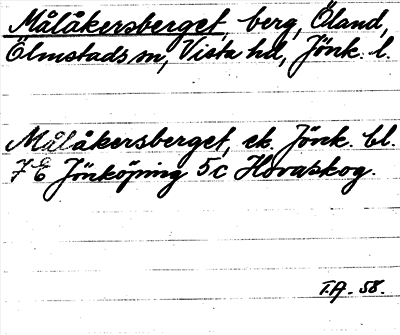 Målåkersberget, berg, Öland,
Ölmstads sn, Vista hd, Jönk. l.
Målåkersberget, ek. Jönk. bl.
7 E Jönköping 5c Hovaskog.
T.A. 58.